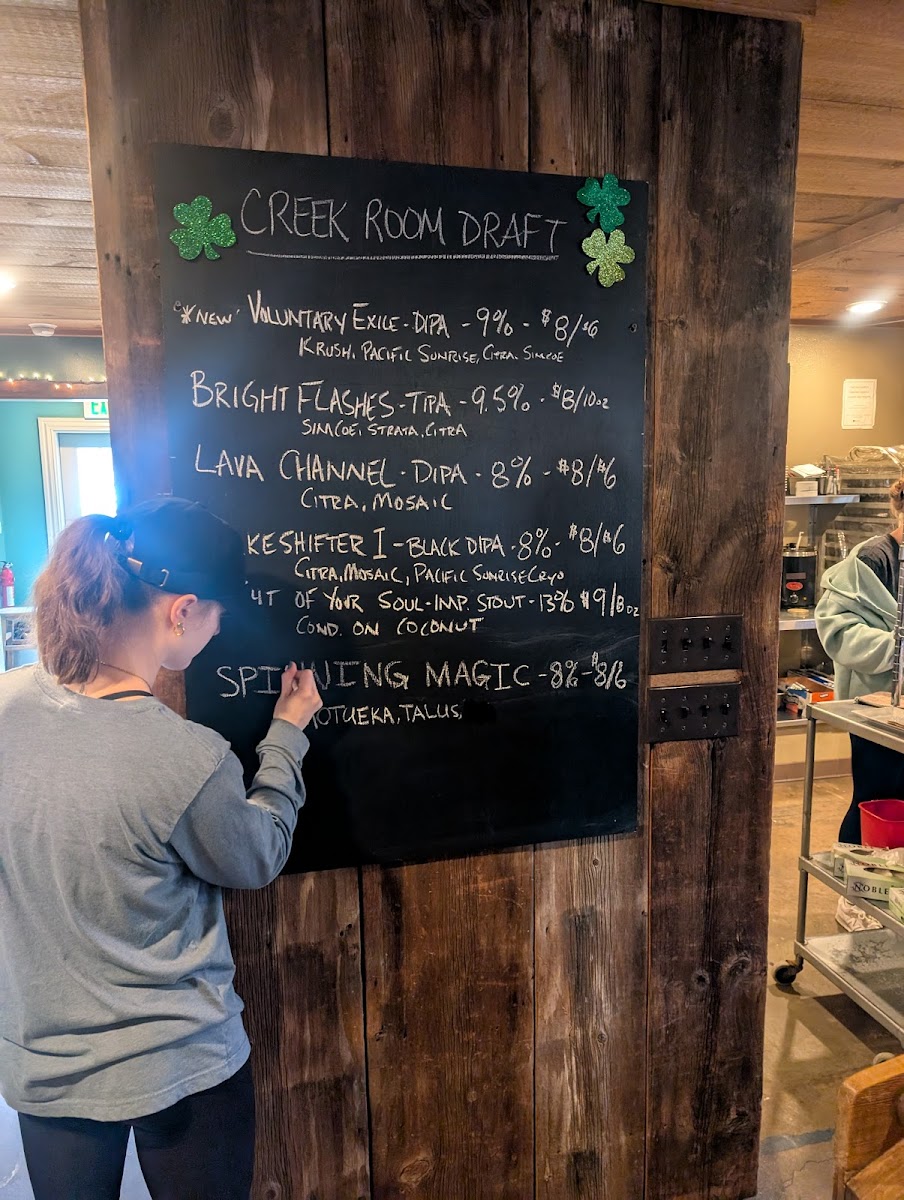 CREEK ROOM DRAFT
*NEW VOLUNTARY EXILE - DIPA - 9% - $8/$6
KRUSH, PACIFIC SUNRISE, CITRA, SIMCOE
BRIGHT FLASHES - TIPA - 9.5% - $8/10oz
SIMCOE, STRATA, CITRA
LAVA CHANNEL - DIPA - 8% - $8/$6
CITRA, MOSAIC
KESHIFTER I - BLACK DIPA - 8% - $8/$6
CITRA, MOSAIC, PACIFIC SUNRISE CRYO
OF YOUR SOUL - IMP. STOUT - 13% $9/8oz
COND. ON COCONUT
SPINNING MAGIC - 8% - $8/6
MOTUEKA, TALUS,
NOBLE